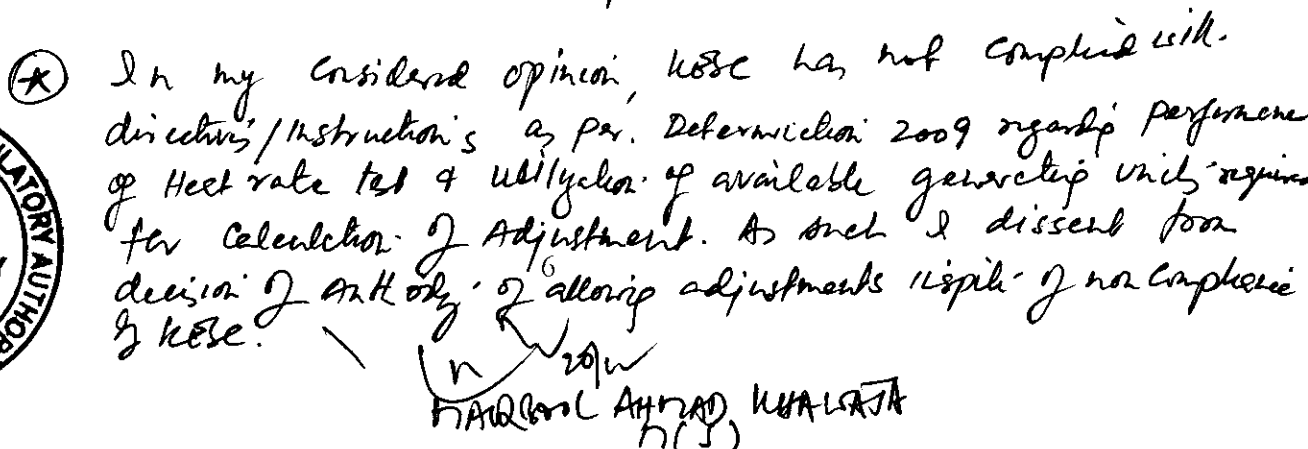 In my considered opinion, KESC has not complied with
directives/Instructions as per. Determination 2009 regarding performance
of Heat rate test & utilization of available generating units required
for calculation of Adjustment. As such I dissent from
decision of Authority of allowing adjustments inspite of non compliance
of KESC.
MAQBOOL AHMAD KHAWAJA
M(J)
ULATORY AUTHOR